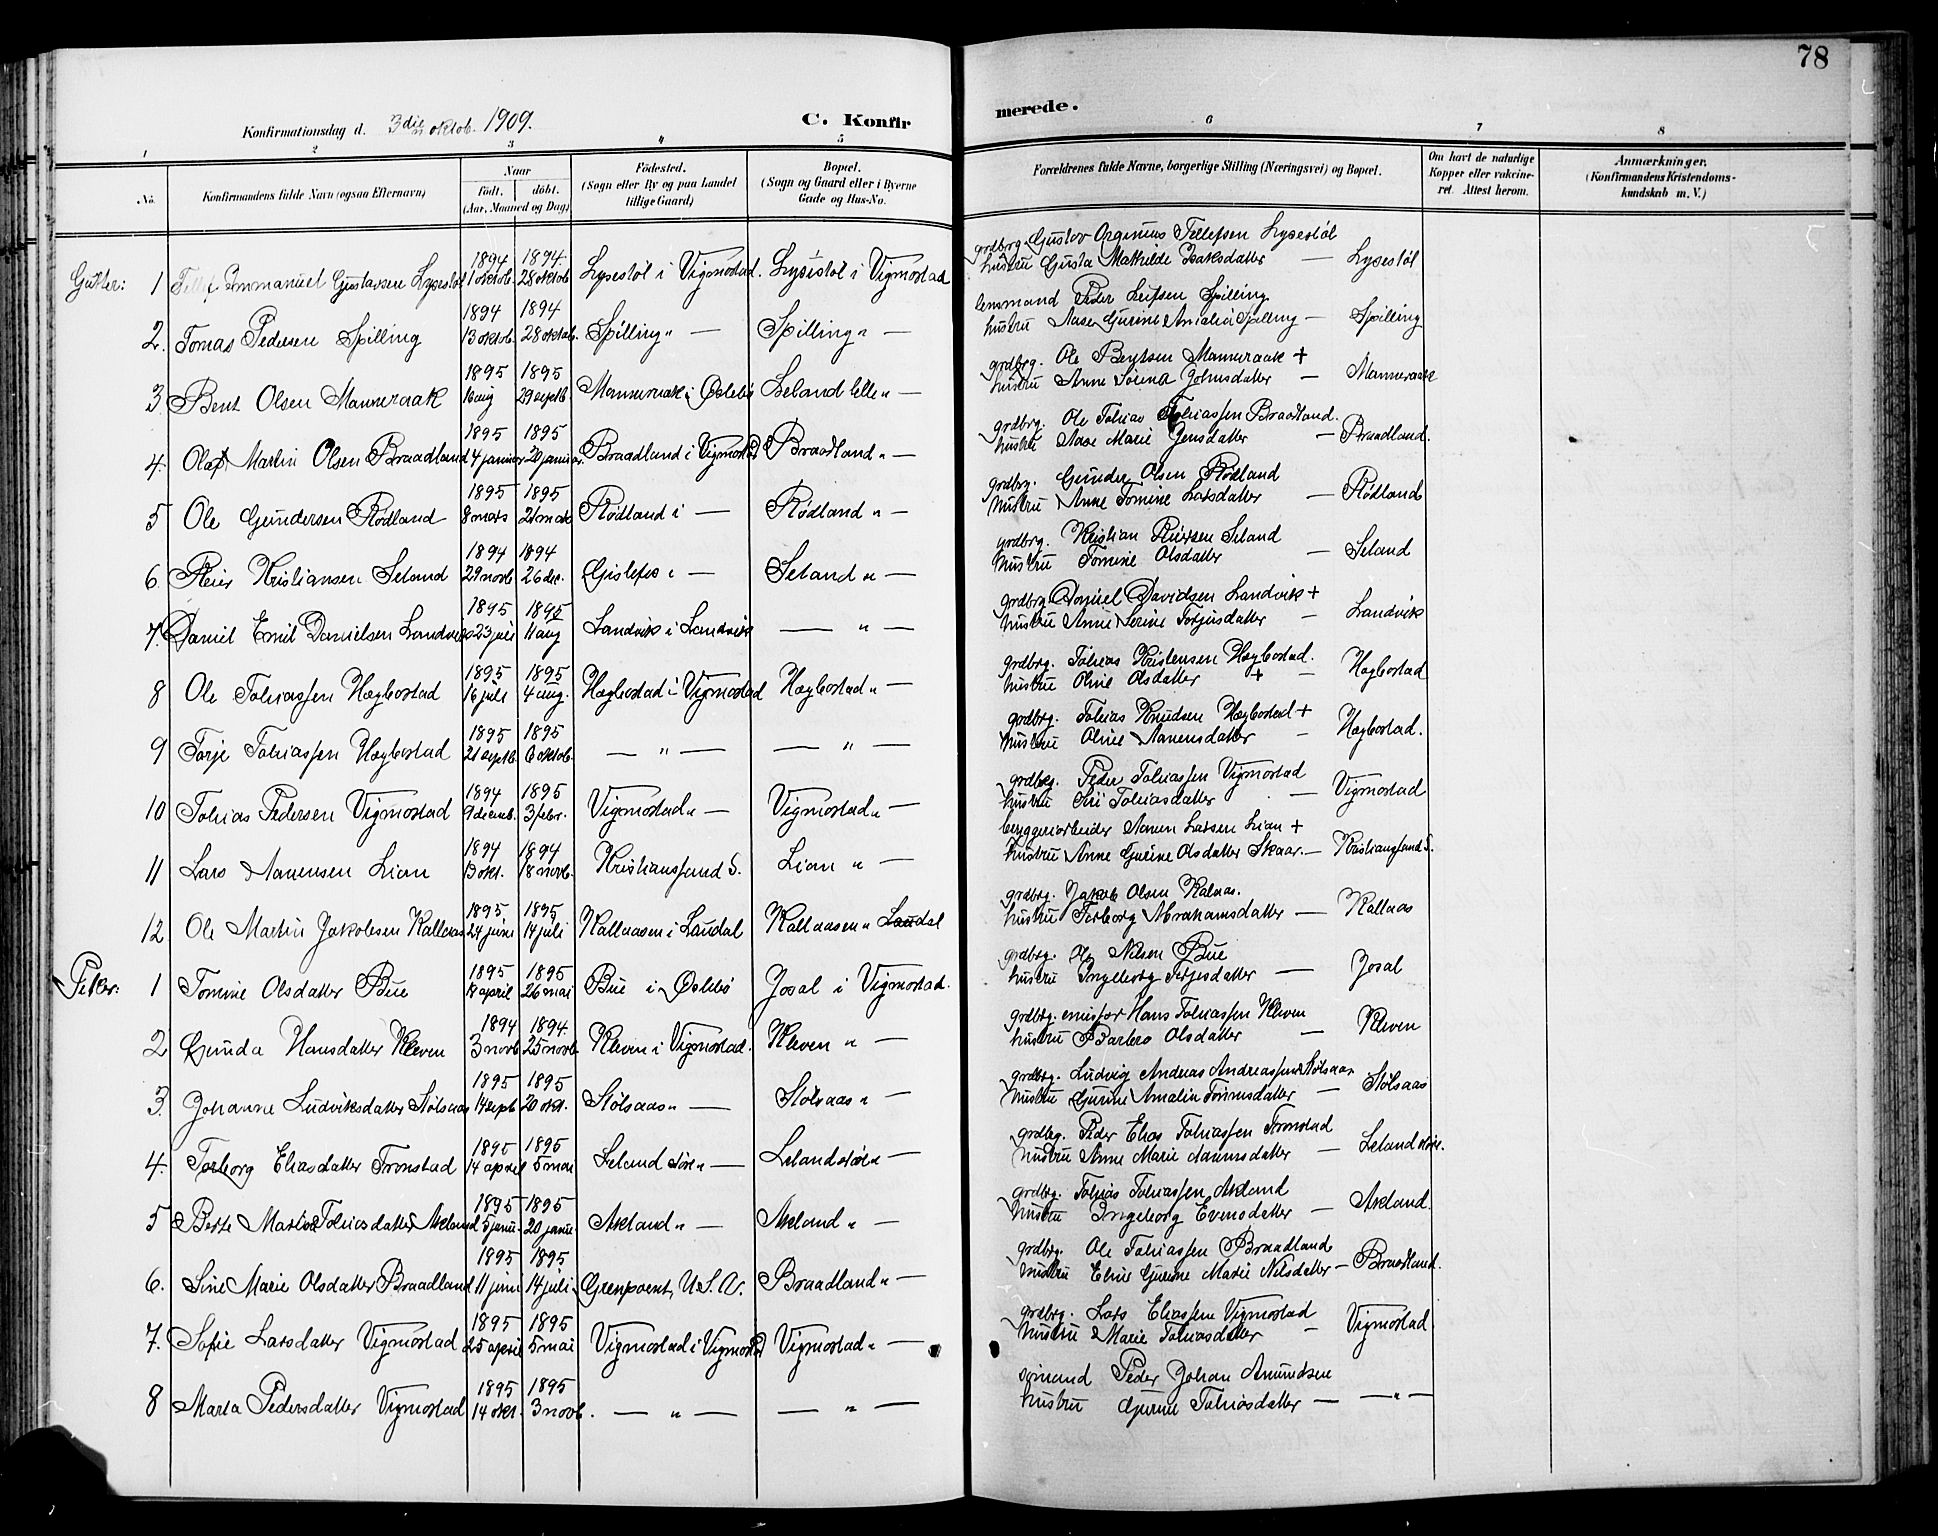 78
Konfirmationsdag d. 3die oktob. 1909.
C. Konfirmerede.
1 2 3 4 5 6 7 8
No. Konfirmandens fulde Navn (ogsaa Efternavn) Naar født. døbt. (Aar, Maaned og Dag) Fødested. (Sogn eller By og paa Landet tillige Gaard) Bopæl. (Sogn og Gaard eller i Byerne Gade og Hus-No. Forældrenes fulde Navne, borgerlige Stilling (Næringsvei) og Bopæl. Om havt de naturlige Kopper eller vakcineret. Attest herom. Anmærkninger. (Konfirmandens Kristendomskundskab m. V.)
Gutter: 1 Tellef Emmanuel Gustavsen Lysestøl 1894 1 oktob. 1894. 28 oktob. Lysestøl i Vigmostad. Lysestøl i Vigmostad grdbrg. Gustav Tellefsen Lysestøl hustru Gusta Mathilde Isaksdatter — Lysestøl
2. Tomas Pedersen Spilling 1894 13 oktob. 1894 28 oktob. Spilling „ — Spilling „ — lensmand Peder Leifsen Spilling hustru Aase Gurine Amalia Spilling — Spilling
3 Bent Olsen Manneraak 1895 16 aug 1895 29 septb. Manneraak i Øslebø Leland lille „ — grdbrg. Ole Bentsen Manneraak + hustru Anne Sørine Johnsdatter — Manneraak
4. Olaf Martin Olsen Braadland 1895 4 januar 1895 20 januar. Braadland i Vigmostad Braadland „ — grdbrg. Ole Tobias Tobiassen Braadland. hustru Aase Marie Jensdatter — Braadland.
5 Ole Gundersen Rødland 1895 8 mars 1895 21 mars Rødland i — Rødland „ — grdbrg. Gunder Olsen Rødland hustru Anne Tomine Larsdatter — Rødland
6. Reier Kristiansen Seland 1894 29 novb 1894 26 dec. Gislefos i — Seland „ — grdbrg. Kristian Reiersen Seland hustru Tomine Olsdatter — Seland
7. Daniel Emil Danielsen Landvik 1895 23 juli 1895 11 aug Landvik i Landvik — „ — grdbrg Daniel Davidsen Landvik + hustru Anne Serine Torjusdatter — Landvik
8 Ole Tobiassen Hægbostad 1895 16 juli 1895 4 aug. Hægbostad i Vigmostad Hægbostad „ — grdbrg. Tobias Kristensen Hægbostad. hustru Oline Olsdatter + — Hægbostad
9 Torje Tobiassen Hægbostad 1895 21 septb. 1895 6 oktob. — „ — — „ — grdbrg. Tobias Knudsen Hægbostad + hustru Oline Aanensdatter — Hægbostad.
10 Tobias Pedersen Vigmostad 1894 9 decemb. 1895 3 febr. Vigmostad „ — Vigmostad „ — grdbrg. Peder Tobiassen Vigmostad hustru Siri Tobiasdatter — Vigmostad
11 Lars Aanensen Lian 1894 13 okt. 1894 18 novb. Kristianssand S. Lian „ — bryggeriarbeider Aanen Larsen Lian + hustru Anne Gurine Olsdatter Skaar. — Kristianssand S.
12 Ole Martin Jakobsen Kallaas 1895 24 juni 1895 14 juli Kallaasen i Laudal Kallaasen „ Laudal grdbrg. Jakob Olsen Kalaas. hustru Torborg Abrahamsdatter — Kallaas
Piker: 1 Tomine Olsdatter Bue 1895 18 april 1895 26 mai Bue i Øslebø Josal i Vigmostad. grdbrg. Ole Nilsen Bue hustru Ingeborg Terjesdatter — Josal
2 Gunda Hansdatter Kleven 1894 3 novb 1894. 25 novb. Kleven i Vigmostad. Kleven „ — grdbrg. emissær Hans Tobiassen Kleven hustru Barbro Olsdatter — Kleven
3. Johanne Ludviksdatter Stølsaas 1895 14 septb 1895 20 okt. Stølsaas „ — Stølsaas „ — grdbrg. Ludvig Andreas Andreassen Stølsaas hustru Gurine Amalia Tønnesdatter — Stølsaas
4. Torborg Eliasdatter Tronstad 1895 14 april 1895 5 mai Leland støre „ — Leland støre „ — grdbrg. Peder Elias Tobiassen Tronstad hustru Anne Marie Aanensdatter — Leland støre.
5 Berte Martine Tobiasdatter Akland 1895 5 janu. 1895 20 janu. Akland „ — Akland „ — grdbrg. Tobias Tobiassen Akland hustru Ingeborg Evensdatter — Akland.
6. Sine Marie Olsdatter Braadland 1895 11 juni 1895 14 juli Grenpoent, U.S.A. Braadland „ — grdbrg. Ole Tobiassen Braadland hustru Eline Gurine Marie Nilsdatter — Braadland.
7. Sofie Larsdatter Vigmostad 1895 25 april 1895 5 mai Vigmostad i Vigmostad Vigmostad „ — grdbrg. Lars Eliassen Vigmostad hustru Marie Tobiasdatter — Vigmostad
8 Marta Pedersdatter Vigmostad 1895 14 okt. 1895 3 novb. — „ — — „ — sømand Peder Johan Amundsen hustru Gurine Tobiasdatter — — „ —